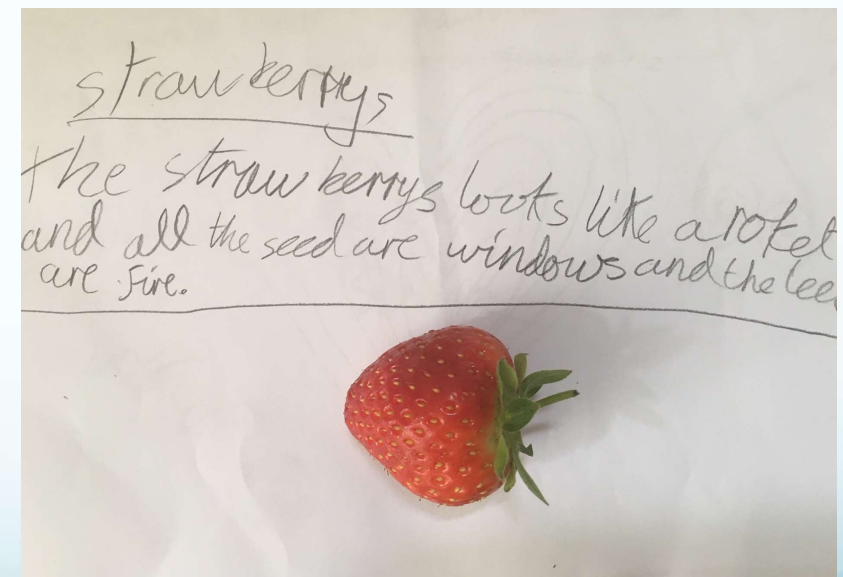 strawberrys
the strawberrys looks like a roket
and all the seed are windows and the lee
are fire.